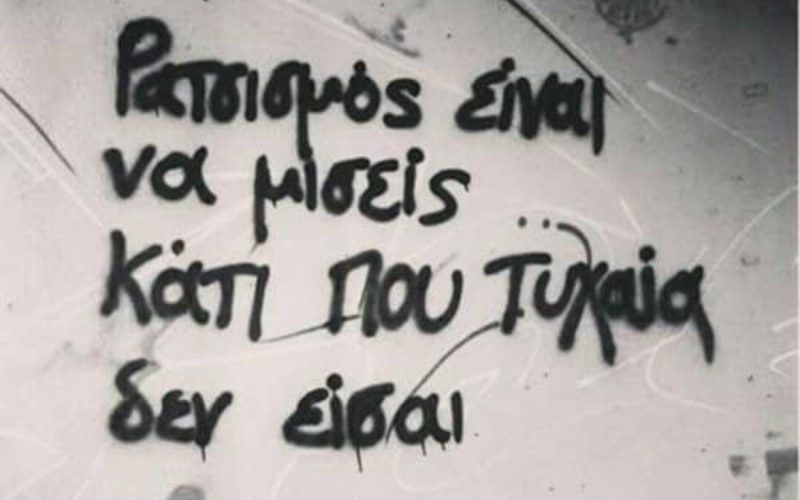 Ρατσισμός είναι
να μισείς
κάτι που τυχαία
δεν είσαι